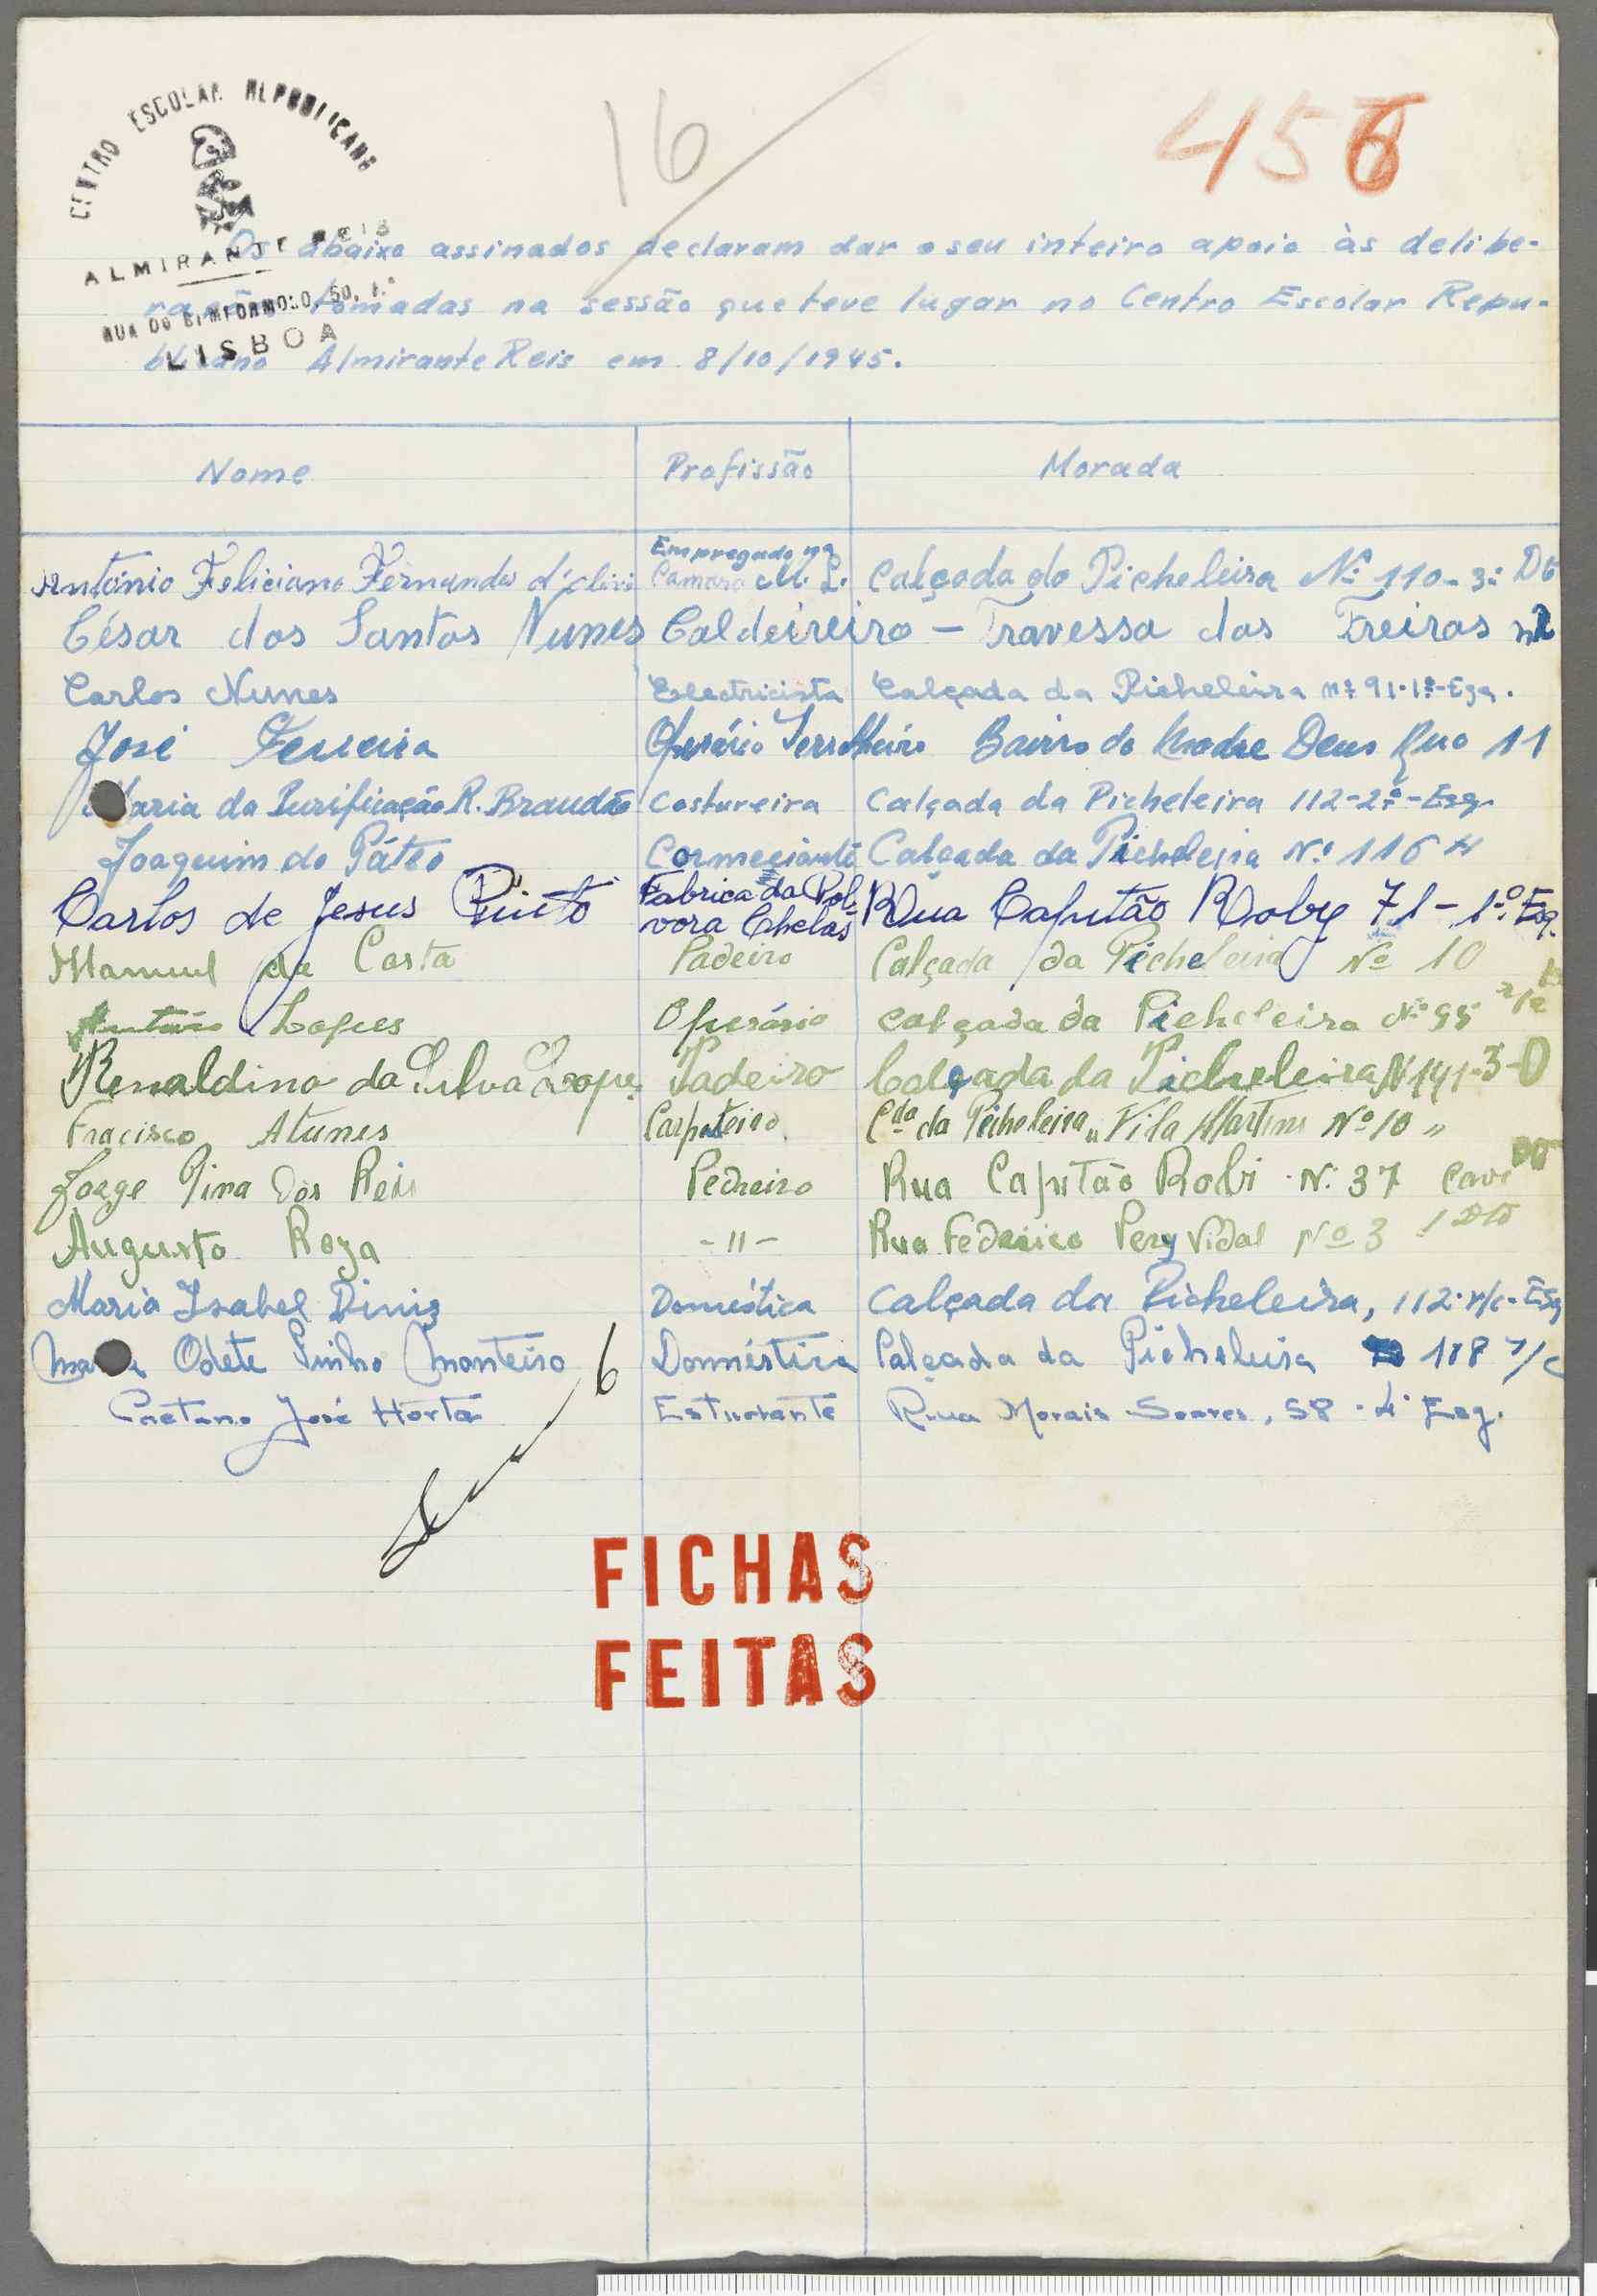 CENTRO ESCOLAR REPUBLICANO
ALMIRANTE REIS
RUA DO BEMFORMOSO, 50, 1.º
LISBOA
16
456
Os abaixo assinados declaram dar o seu inteiro apoio às delibe-
rações tomadas na sessão que teve lugar no Centro Escolar Repu-
blicano Almirante Reis em 8/10/1945.
Nome Profissão Morada
António Feliciano Fernandes d'Olivei Empregado na Camara M. L. Calçada do Picheleira Nº 110-3º Dto
César dos Santos Nunes Caldeireiro – Travessa das Freiras nº 2
Carlos Nunes Electricista Calçada da Picheleira nº 91-1º-Esq.
José Ferreira Operário Serralheiro Bairro do Madre Deus Rua 11
Maria da Purificação R. Brandão Costureira Calçada da Picheleira 112-2º-Esq.
Joaquim do Páteo Cormeciante Calçada da Picheleira Nº 116 H
Carlos de Jesus Pinto Fabrica da Pol-vora Chelas Rua Capitão Roby 71-1º Esq.
Manuel da Costa Padeiro Calçada da Picheleira Nº 10
António Lopes Operário Calçada da Picheleira Nº 95 r/c
Renaldino da Silva Lopes Padeiro Calçada da Picheleira Nº 141-3-D
Fracisco Atunes Carpeteiro Cda da Picheleira "Vila Martins Nº 10"
Jorge Pina Dos Reis Pedreiro Rua Capitão Robi Nº 37 Cave
Augusto Roza -"- Rua Federico Pery Vidal Nº 3 1 Dto
Maria Isabel Diniz Doméstica Calçada da Picheleira, 112-r/c-Esq
Maria Odete Pinho Monteiro Doméstica Calçada da Picheleira 118 r/c
Caetano José Horta Estudante Rua Morais Soares, 58-4º Esq.
6
FICHAS
FEITAS